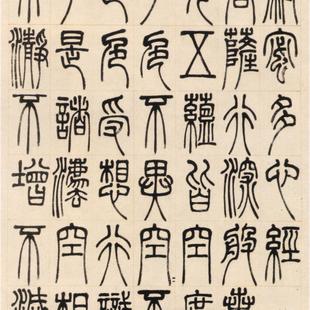 蜜多心經
薩行深般若
五蘊皆空度
色不異空不
色受想行識
是諸灋空相
不瀞不增不減